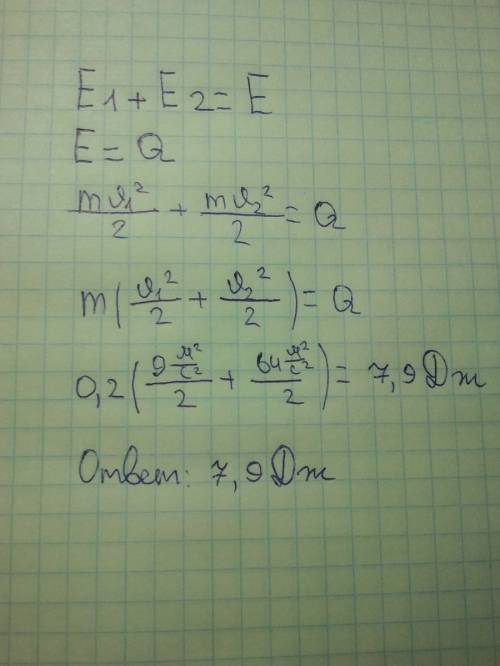 E1 + E2 = E
E = Q
mϑ₁²/2 + mϑ₂²/2 = Q
m(ϑ₁²/2 + ϑ₂²/2) = Q
0,2(9 м²/с²/2 + 64 м²/с²/2) = 7,9 Дж
Ответ: 7,9 Дж